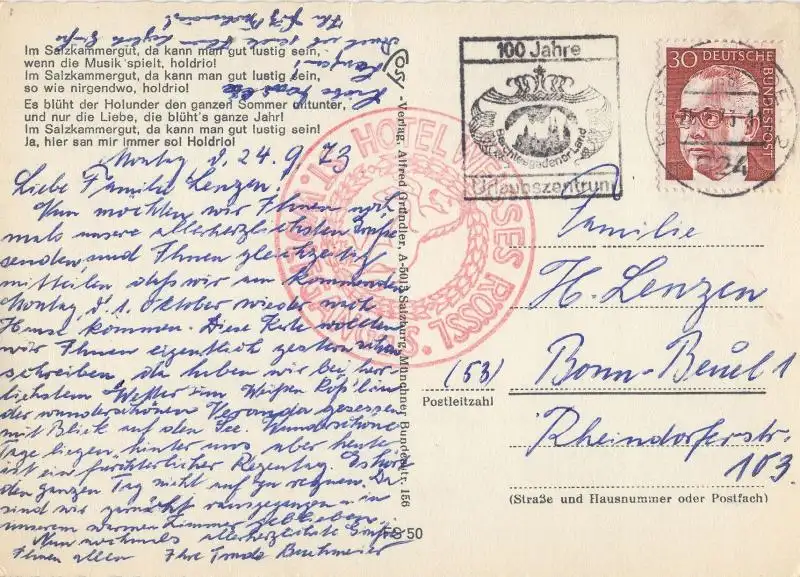 Im Salzkammergut, da kann man gut lustig sein,
wenn die Musik spielt, holdrio!
Im Salzkammergut, da kann man gut lustig sein,
so wie nirgendwo, holdrio!
Es blüht der Holunder den ganzen Sommer mitunter,
und nur die Liebe, die blüht's ganze Jahr!
Im Salzkammergut, da kann man gut lustig sein!
Ja, hier san mir immer sol Holdrio!
Montag d. 24.9.73
Liebe Familie Lenzen!
Nun möchten wir Ihnen noch
mals unsere allerherzlichsten Grüße
senden, und Ihnen gleichzeitig
mitteilen daß wir am kommenden
Montag, d. 1. Oktober wieder nach
Hause kommen. Diese Karte wollten
wir Ihnen eigentlich gestern schon
schreiben, da haben wir bei herr
lichstem Wetter im Weißen Röß'l in
der wunderschönen Veranda gesessen
mit Blick auf den See. Wunderschöne
Tage liegen hinter uns aber heute
ist ein fürchterlicher Regentag. Es hört
den ganzen Tag nicht auf zu regnen. Da
sind wir garnicht rausgegangen u. in
unserem warmen Zimmer geblieben.
Nun nochmals allerherzlichste Grüße
Ihnen allen Ihre Trude
Cosy
-Verlag, Alfred Gründler, A-5013 Salzburg, Münchner Bundesstr. 156
50
HOTEL WEISSES RÖSSL
100 Jahre
Berchtesgadener Land
Urlaubszentrum
30 DEUTSCHE BUNDESPOST
824
Familie
H. Lenzen
(53)
Postleitzahl
Bonn-Beuel 1
Rheindorferstr.
103
(Straße und Hausnummer oder Postfach)